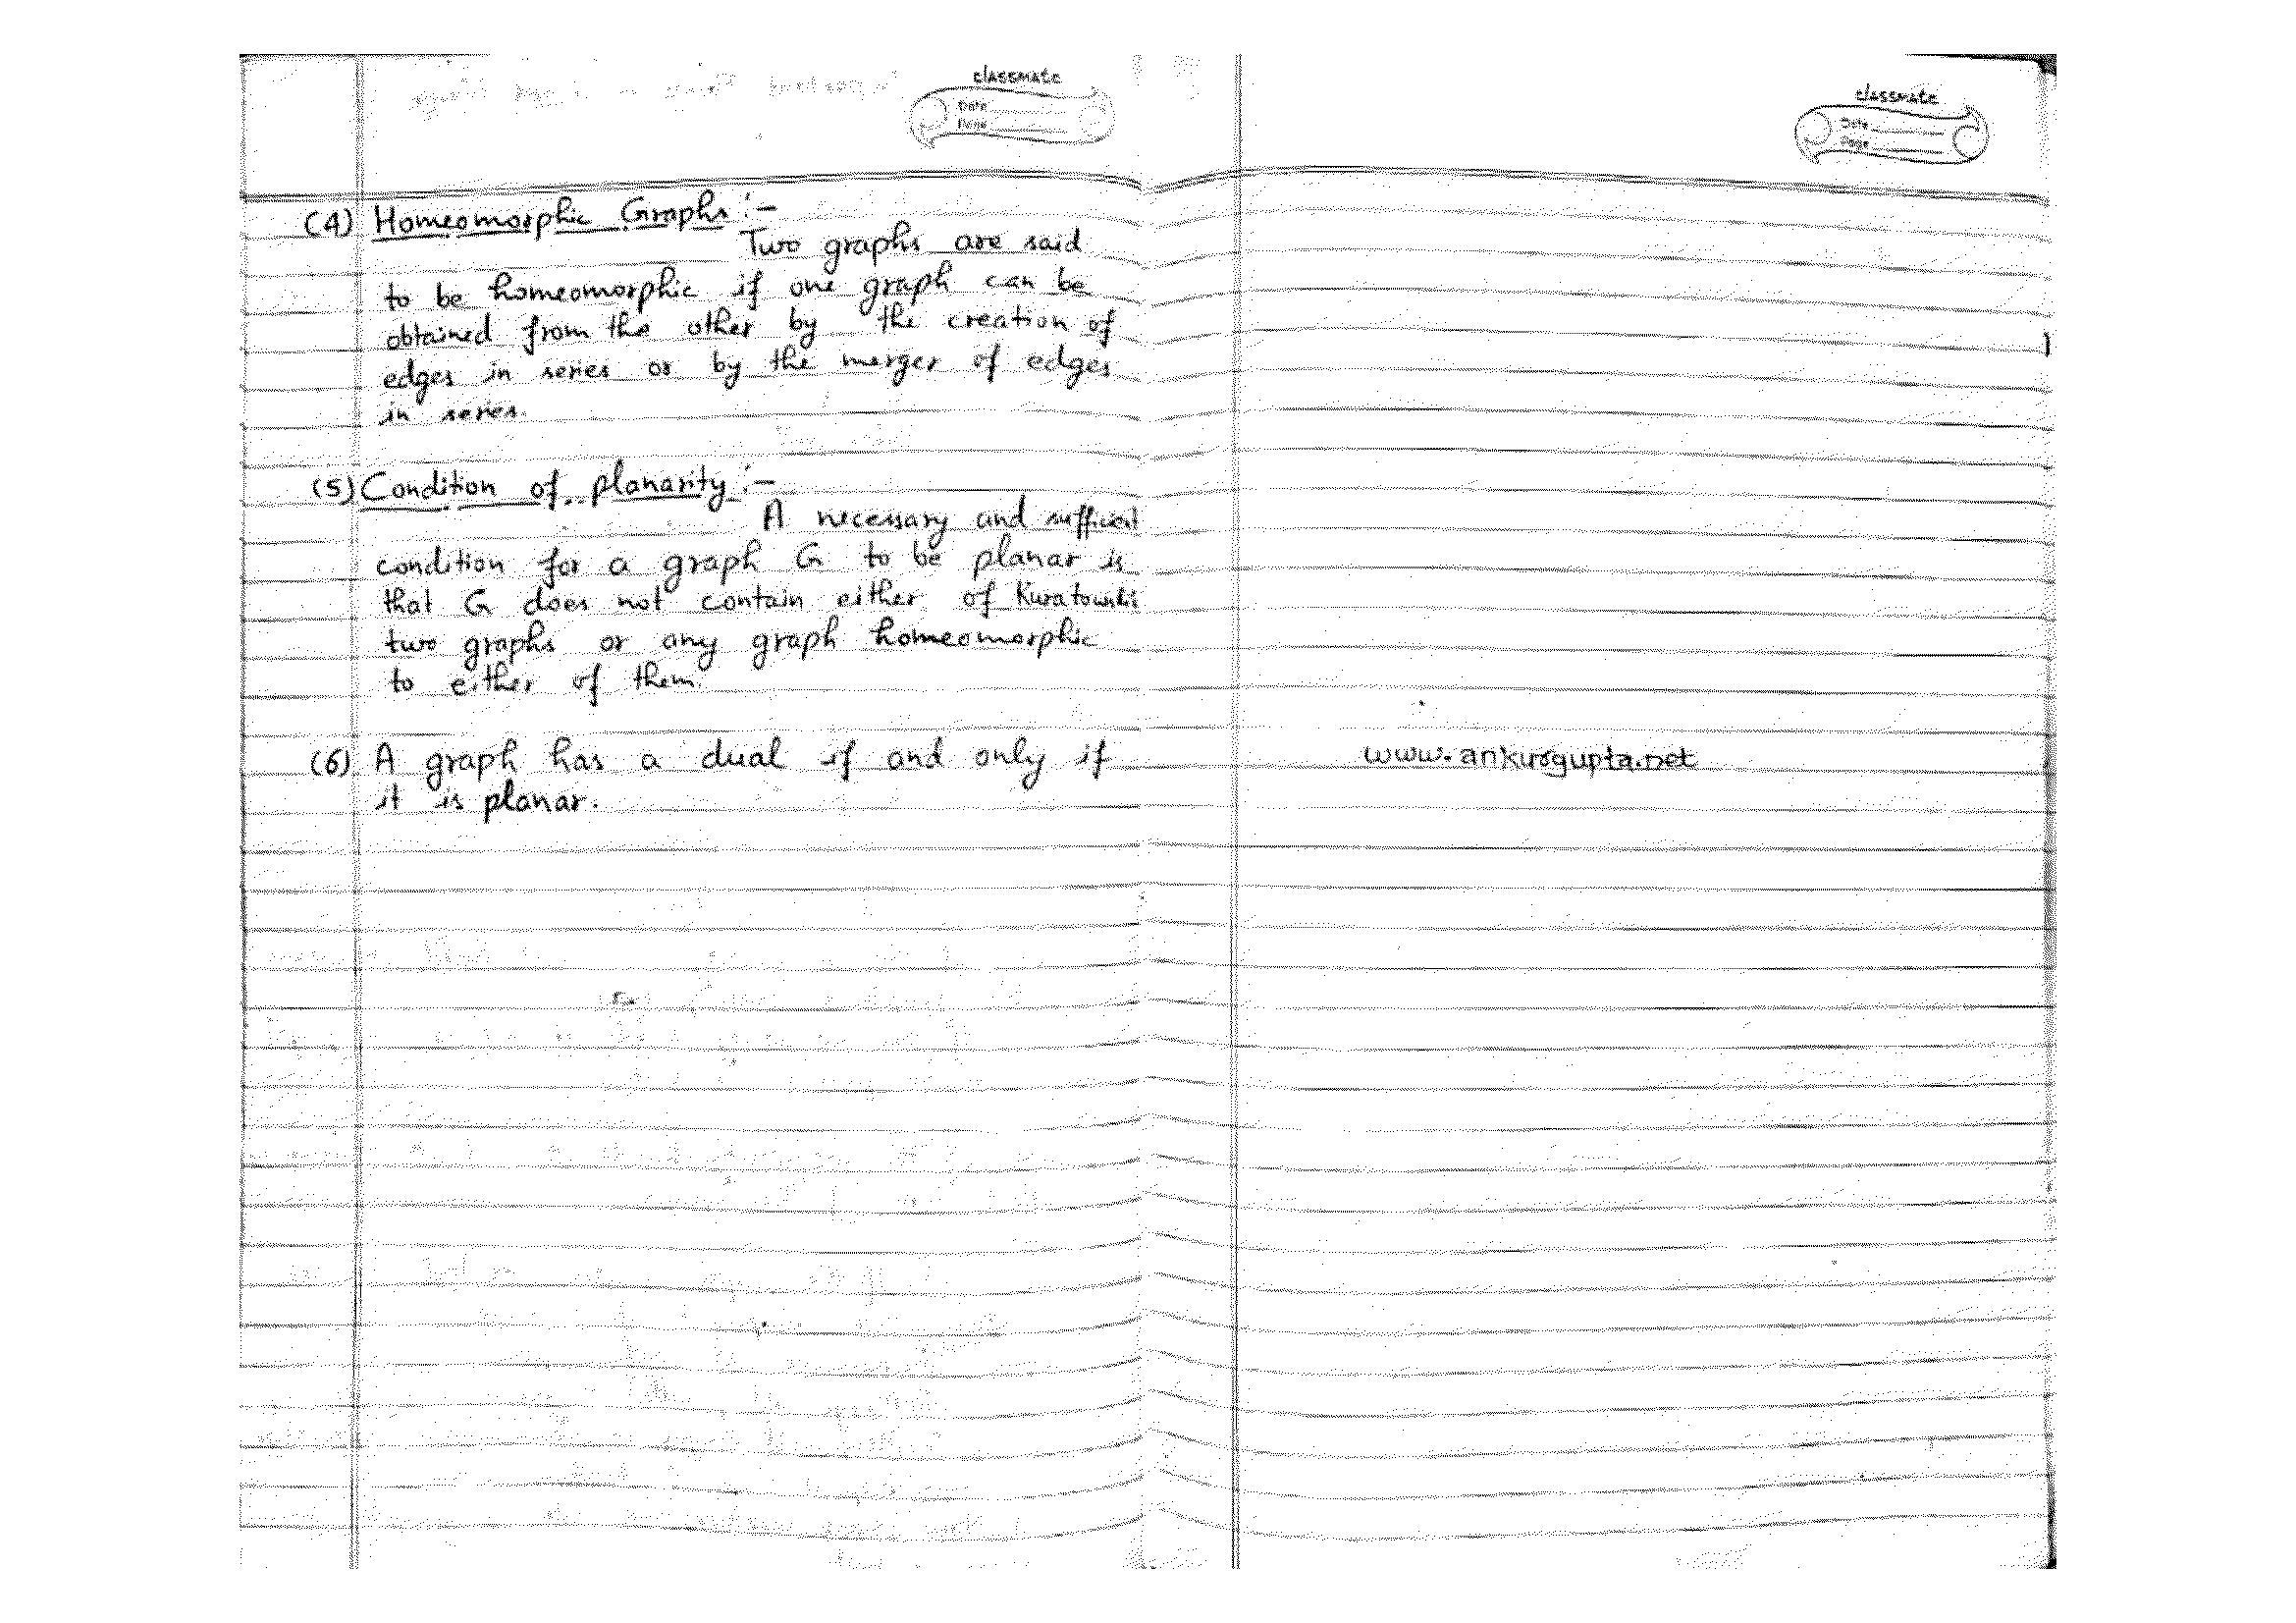 classmate
Date
Page
(4) Homeomorphic Graphs :-
Two graphs are said
to be homeomorphic if one graph can be
obtained from the other by the creation of
edges in series or by the merger of edges
in series.
(5) Condition of planarity :-
A necessary and sufficient
condition for a graph G to be planar is
that G does not contain either of Kuratowski's
two graphs or any graph homeomorphic
to either of them.
(6) A graph has a dual if and only if
it is planar.
classmate
Date
Page
www.ankurgupta.net